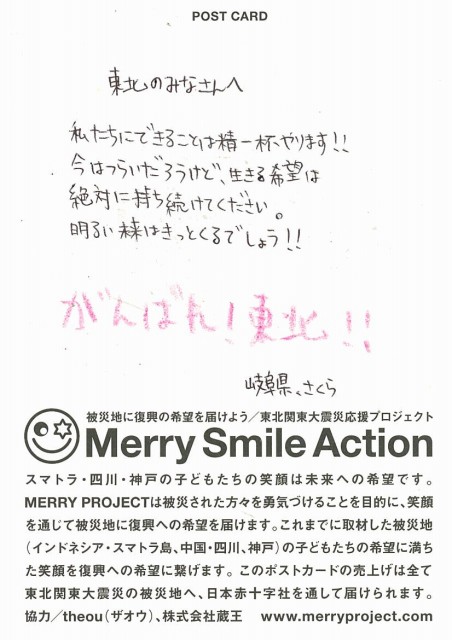 POST CARD
東北のみなさんへ
私たちにできることは精一杯、やります!!
今はつらいだろうけど、生きる希望は
絶対に持ち続けてください。
明るい未来はきっとくるでしょう!!
がんばれ!東北!!
岐阜県、さくら
被災地に復興の希望を届けよう/東北関東大震災応援プロジェクト
Merry Smile Action
スマトラ・四川・神戸の子どもたちの笑顔は未来への希望です。
MERRY PROJECTは被災された方々を勇気づけることを目的に、笑顔
を通じて被災地に復興への希望を届けます。これまでに取材した被災地
(インドネシア・スマトラ島、中国・四川、神戸)の子どもたちの希望に満ち
た笑顔を復興への希望に繋げます。このポストカードの売上げは全て
東北関東大震災の被災地へ、日本赤十字社を通して届けられます。
協力/theou(ザオウ)、株式会社蔵王 www.merryproject.com